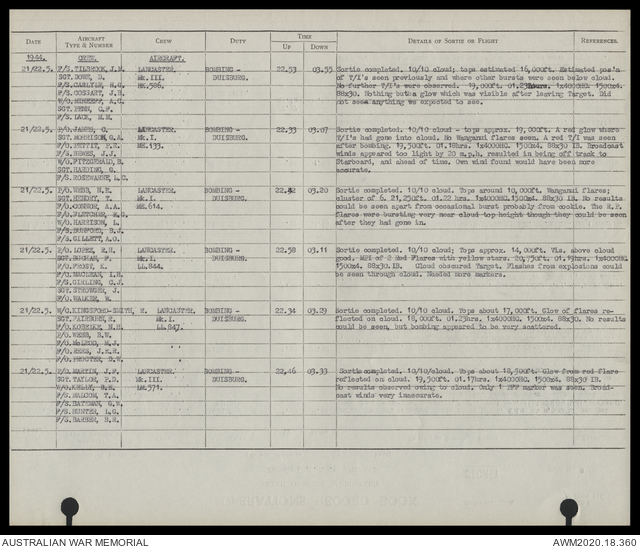 TIME
DATE AIRCRAFT TYPE & NUMBER CREW DUTY UP DOWN DETAILS OF SORTIE OR FLIGHT REFERENCES
1944. CREW. AIRCRAFT.
21/22.5. F/S. TILBROOK, J.M. LANCASTER BOMBING - 22.53 03.55 Sortie completed. 10/10 cloud; tops estimated 16,000ft. Estimated pos'n
SGT. DOWE, D. Mk.III. DUISBURG. of T/I's seen previously and where other bursts were seen below cloud.
F/S. CARLYLE, R.G. ME.586. No further T/I's were observed. 19,000ft. 01.23hours. 1x4000HC. 1500x4.
F/S. COSSART, J.R. 88x30. Nothing but a glow which was visible after leaving Target. Did
not seen anything we expected to see.
SGT. PENN, C.F.
F/S. LACK, H.H.
21/22.5. LANCASTER BOMBING - 22.33 03.07 Sortie completed. 10/10 cloud - tops approx. 19,000ft. A red glow where
SGT. MORRISON, G.A. Mk.I. DUISBURG. T/I's had gone into cloud. No Wanganni flares seen. A red T/I was seen
ME.133. after bombing. 19,500ft. 01.18hrs. 1x4000HC. 1500x4. 88x30 IB. Broadcast
F/S. HEMES, J.J. winds appeared too light by 20 m.p.h. resulted in being off track to
W/O. FITZGERALD, B. Starboard, and ahead of time. Own wind found would have been more
SGT. HARDING, G. accurate.
F/S. ROSEWARNE, L.C.
21/22.5 P/O. WEBB, N.E. LANCASTER BOMBING - 22.42 03.20 Sortie completed. 10/10 Cloud. Tops around 10,000ft. Wanganui flares;
SGT. HENDRY, T. Mk.I. DUISBURG. cluster of 6. 21,250ft. 01.22 hrs. 1x4000HC.1500x4. 88x30 IB. No results
F/O. CONNOR, A.A. ME.614. could be seen apart from occasional burst probably from cookie. The R.P.
P/O. FLETCHER, E.G. flares were bursting very near cloud top height though they could be seen
W/O. HARRISON, L. after they had gone in.
F/S. DUNFORD, B.J.
F/S. GILLETT, A.G.
21/22.5. P/O. LOPEZ, R.H. LANCASTER BOMBING - 22.58 03.11 Sortie completed. 10/10 cloud; Tops approx. 14,000ft. Vis. above cloud
SGT. BUCHAN, F. Mk.I. DUISBURG. good. MPI of 2 Red Flares with yellow stars. 20,750ft. 01.13hrs. 1x4000HC.
F/O. FROST, K. LL.844. 1500x4. 88x30.IB. Cloud obscured Target. Flashes from explosions could
F/O. MACLEAN, I.H. be seen through cloud. Needed more markers.
F/S. GIRLING, C.J.
SGT. STROWGER, J.
F/O. WALKER, W.
21/22.5 W/C. KINGSFORD-SMITH, R. LANCASTER. BOMBING - 22.34 03.29 Sortie completed. 10/10 Cloud. Tops about 17,000ft. Glow of flares re-
SGT. FAIRBURN, H. Mk.I. DUISBURG. flected on cloud. 18,000ft. 01.23hrs. 1x4000HC. 1500x4. 88x30. No results
F/O. KOBELKE, N.H. LL.847. could be seen, but bombing appeared to be very scattered.
F/O. WEBB, B.W.
P/O. McLEOD, M.J.
F/O. REES, J.K.R.
F/O. PROCTOR, D.W.
21/22.5 P/O. MARTIN, J.F. LANCASTER. BOMBING - 22.46 03.33 Sortie completed. 10/10/cloud. Tops about 18,500ft. Glow from red flare
SGT. TAYLOR, F.D. Mk.III. DUISBURG. reflected on cloud. 19,500ft. 01.17hrs. 1x4000HC. 1500x4. 88x30 IB.
LM.571. No results observed owing to cloud. Only 1 PFF marker was seen. Broad-
F/S. MALCOM, T.A. cast winds very inaccurate.
F/S. BATEMAN, G.W.
F/S. HUNTER, L.G.
F/S. BARBER, R.H.
AUSTRALIAN WAR MEMORIAL AWM2020.18.360